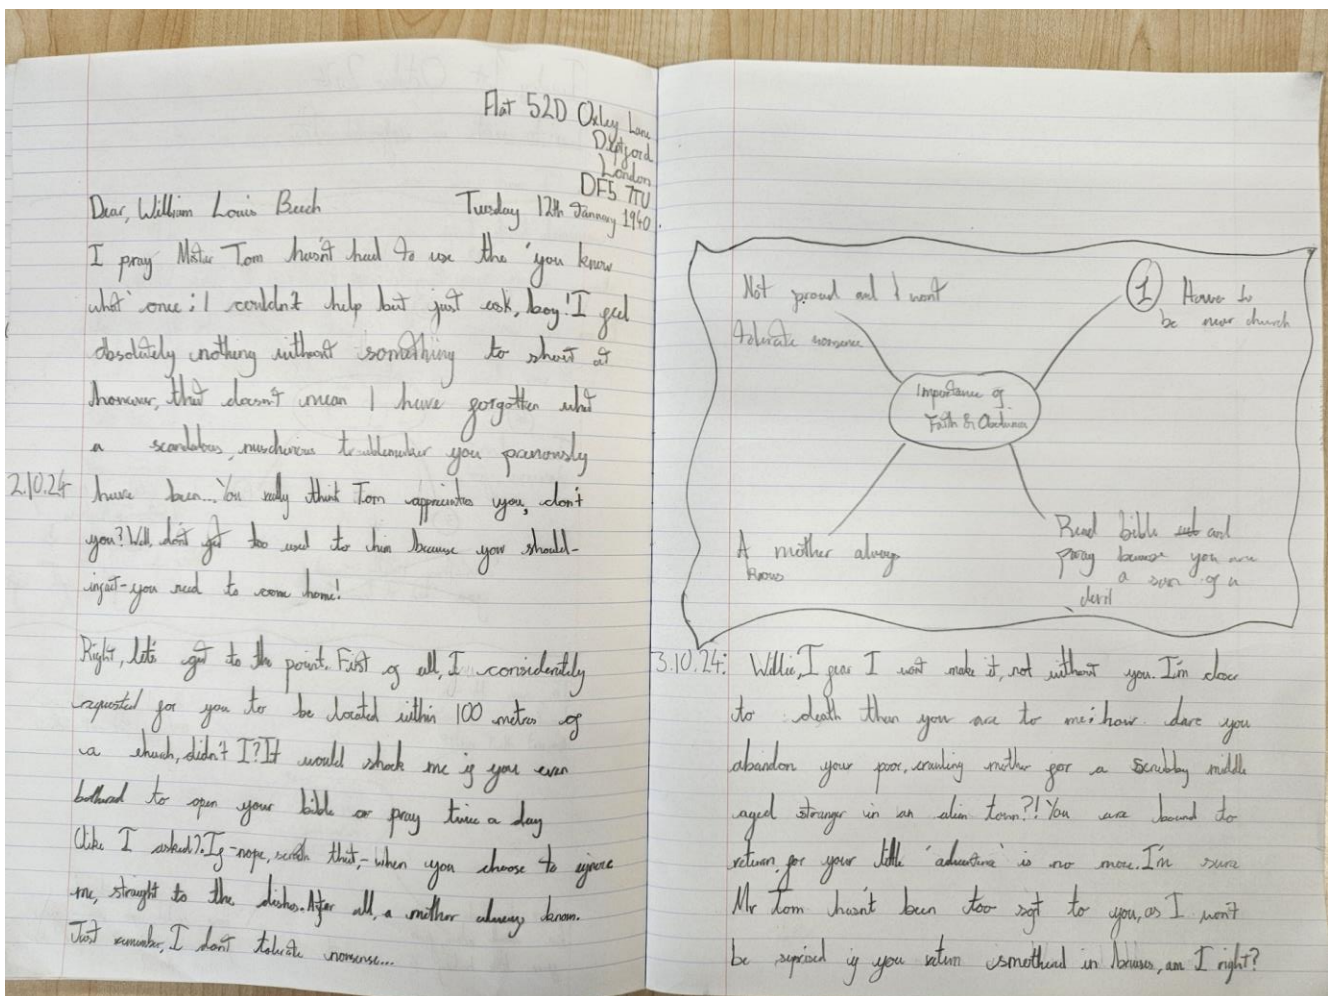 Flat 52D Oxley Lane
Deptford
London
DF5 7TU
Dear, William Louis Beech
Tuesday 12th January 1940.
I pray Mister Tom hasn't had to use the 'you know
what' once; I couldn't help but just ask, boy! I feel
absolutely nothing without something to shout at
however, that doesn't mean I have forgotten what
a scandalous, troublemaker you previously
2.10.24 have been... You really think Tom appreciates you, don't
you? Well, don't get too used to him because you should-
infact-you need to come home!
Right, let's get to the point. First of all, I considerately
requested for you to be located within 100 metres of
a church, didn't I? It would shock me if you even
bothered to open your bible or pray twice a day
(like I asked). If -nope, scratch that,- when you choose to ignore
me, straight to the dishes. After all, a mother always knows.
Just remember, I don't tolerate nonsense...
Not proud and I wont
tolerate nonsense
1 House to
be near church
Importance of
Faith & Obedience
A mother always
knows
Read bible and
pray because you are
a son of a
devil
3.10.24: Willie, I fear I wont make it, not without you. I'm closer
to death than you are to me: how dare you
abandon your poor, mother for a scrubby middle
aged stranger in an alien town?! You are bound to
return, for your little 'adventure' is no more. I'm sure
Mr Tom hasn't been too soft to you, as I won't
be if you return smothered in bruises, am I right?